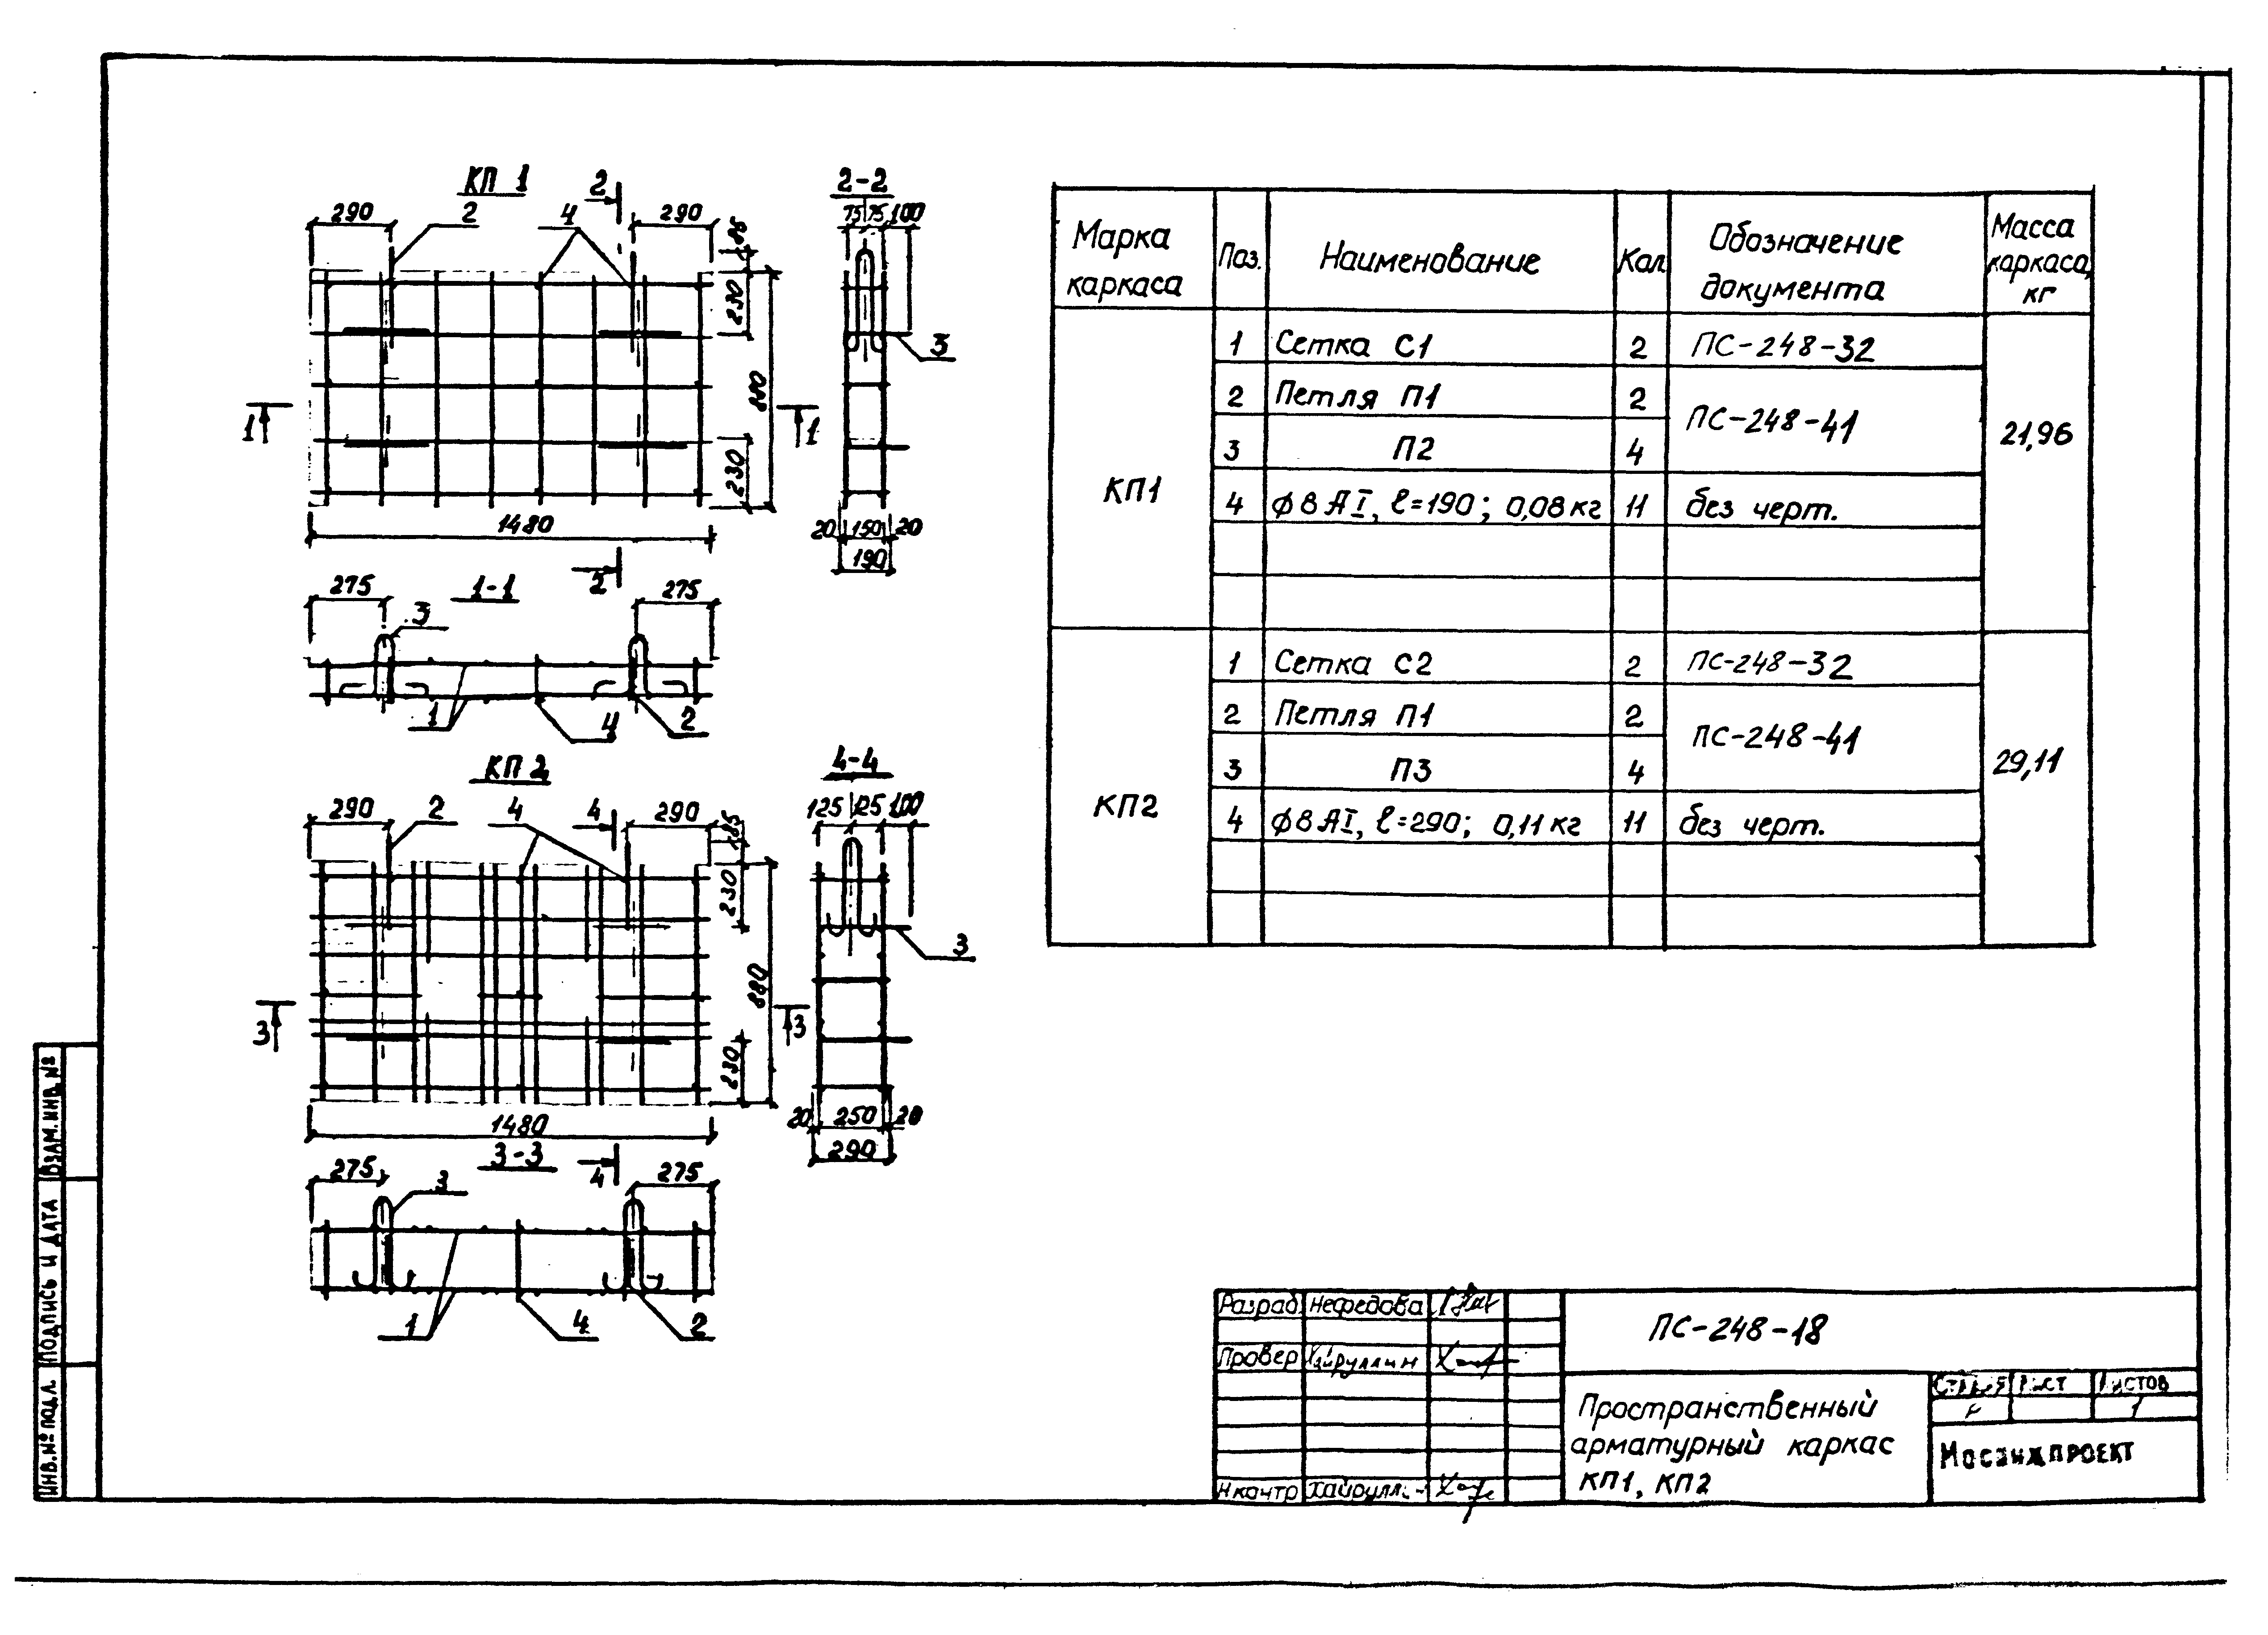 КП 1
2
290
2
4
290
85
230
880
230
1
1
1480
2
2-2
75 75 100
3
20 150 20
190
275
1-1
275
3
1
4
2
КП 2
290
2
4
4
290
85
230
880
230
3
3
1480
4
4-4
125 125 100
3
20 250 20
290
3-3
275
3
275
1
4
2
Марка каркаса
Поз.
Наименование
Кол
Обозначение документа
Масса каркаса, кг
КП1
1 Сетка С1 2 ПС-248-32
2 Петля П1 2 ПС-248-41
3 П2 4
4 ϕ8 АI, ℓ=190; 0,08кг 11 без черт.
21,96
КП2
1 Сетка С2 2 ПС-248-32
2 Петля П1 2 ПС-248-41
3 П3 4
4 ϕ8 АI, ℓ=290; 0,11кг 11 без черт.
29,11
ВЗАМ.ИНВ.№
ПОДПИСЬ И ДАТА
ИНВ.№ ПОДЛ.
Разраб. Нефедова
Провер Хайруллин
Н контр
ПС-248-18
Пространственный
арматурный каркас
КП1, КП2
Стадия Лист Листов
1
Мосинжпроект